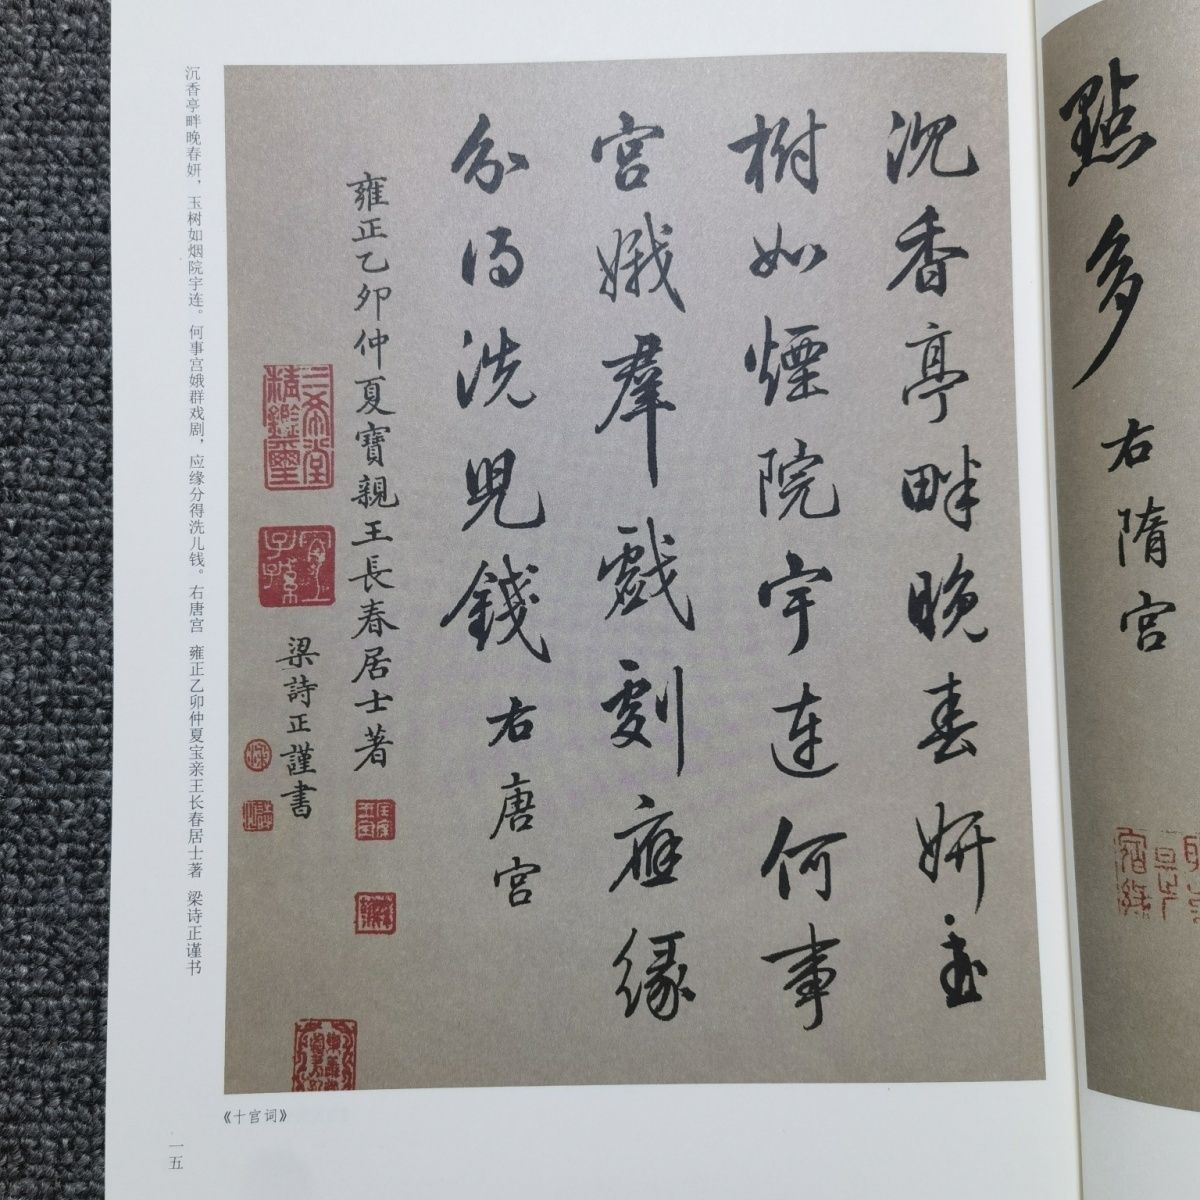 點多
右隋宮
沉香亭畔晚春妍玉
樹如煙院宇連何事
宮娥羣戲劇應緣
分得洗兒錢 右唐宮
雍正乙卯仲夏寶親王長春居士著
梁詩正謹書
三希堂精鑑璽
宜子孫
沉香亭畔晚春妍，玉树如烟院宇连。何事宫娥群戏剧，应缘分得洗儿钱。右唐宫 雍正乙卯仲夏宝亲王长春居士著 梁诗正谨书
《十宫词》
一五